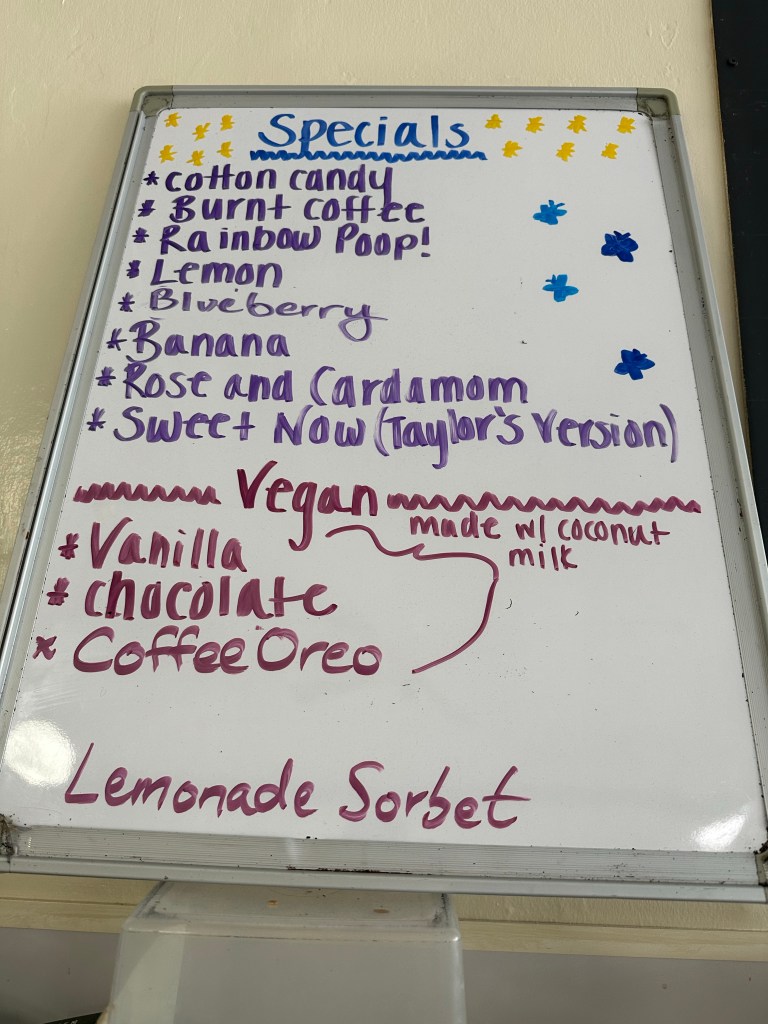 Specials
* cotton candy
* Burnt coffee
* Rainbow Poop!
* Lemon
* Blueberry
* Banana
* Rose and Cardamom
* Sweet Now (Taylor's Version)
Vegan
made w/ coconut
milk
* Vanilla
* chocolate
* Coffee Oreo
Lemonade Sorbet